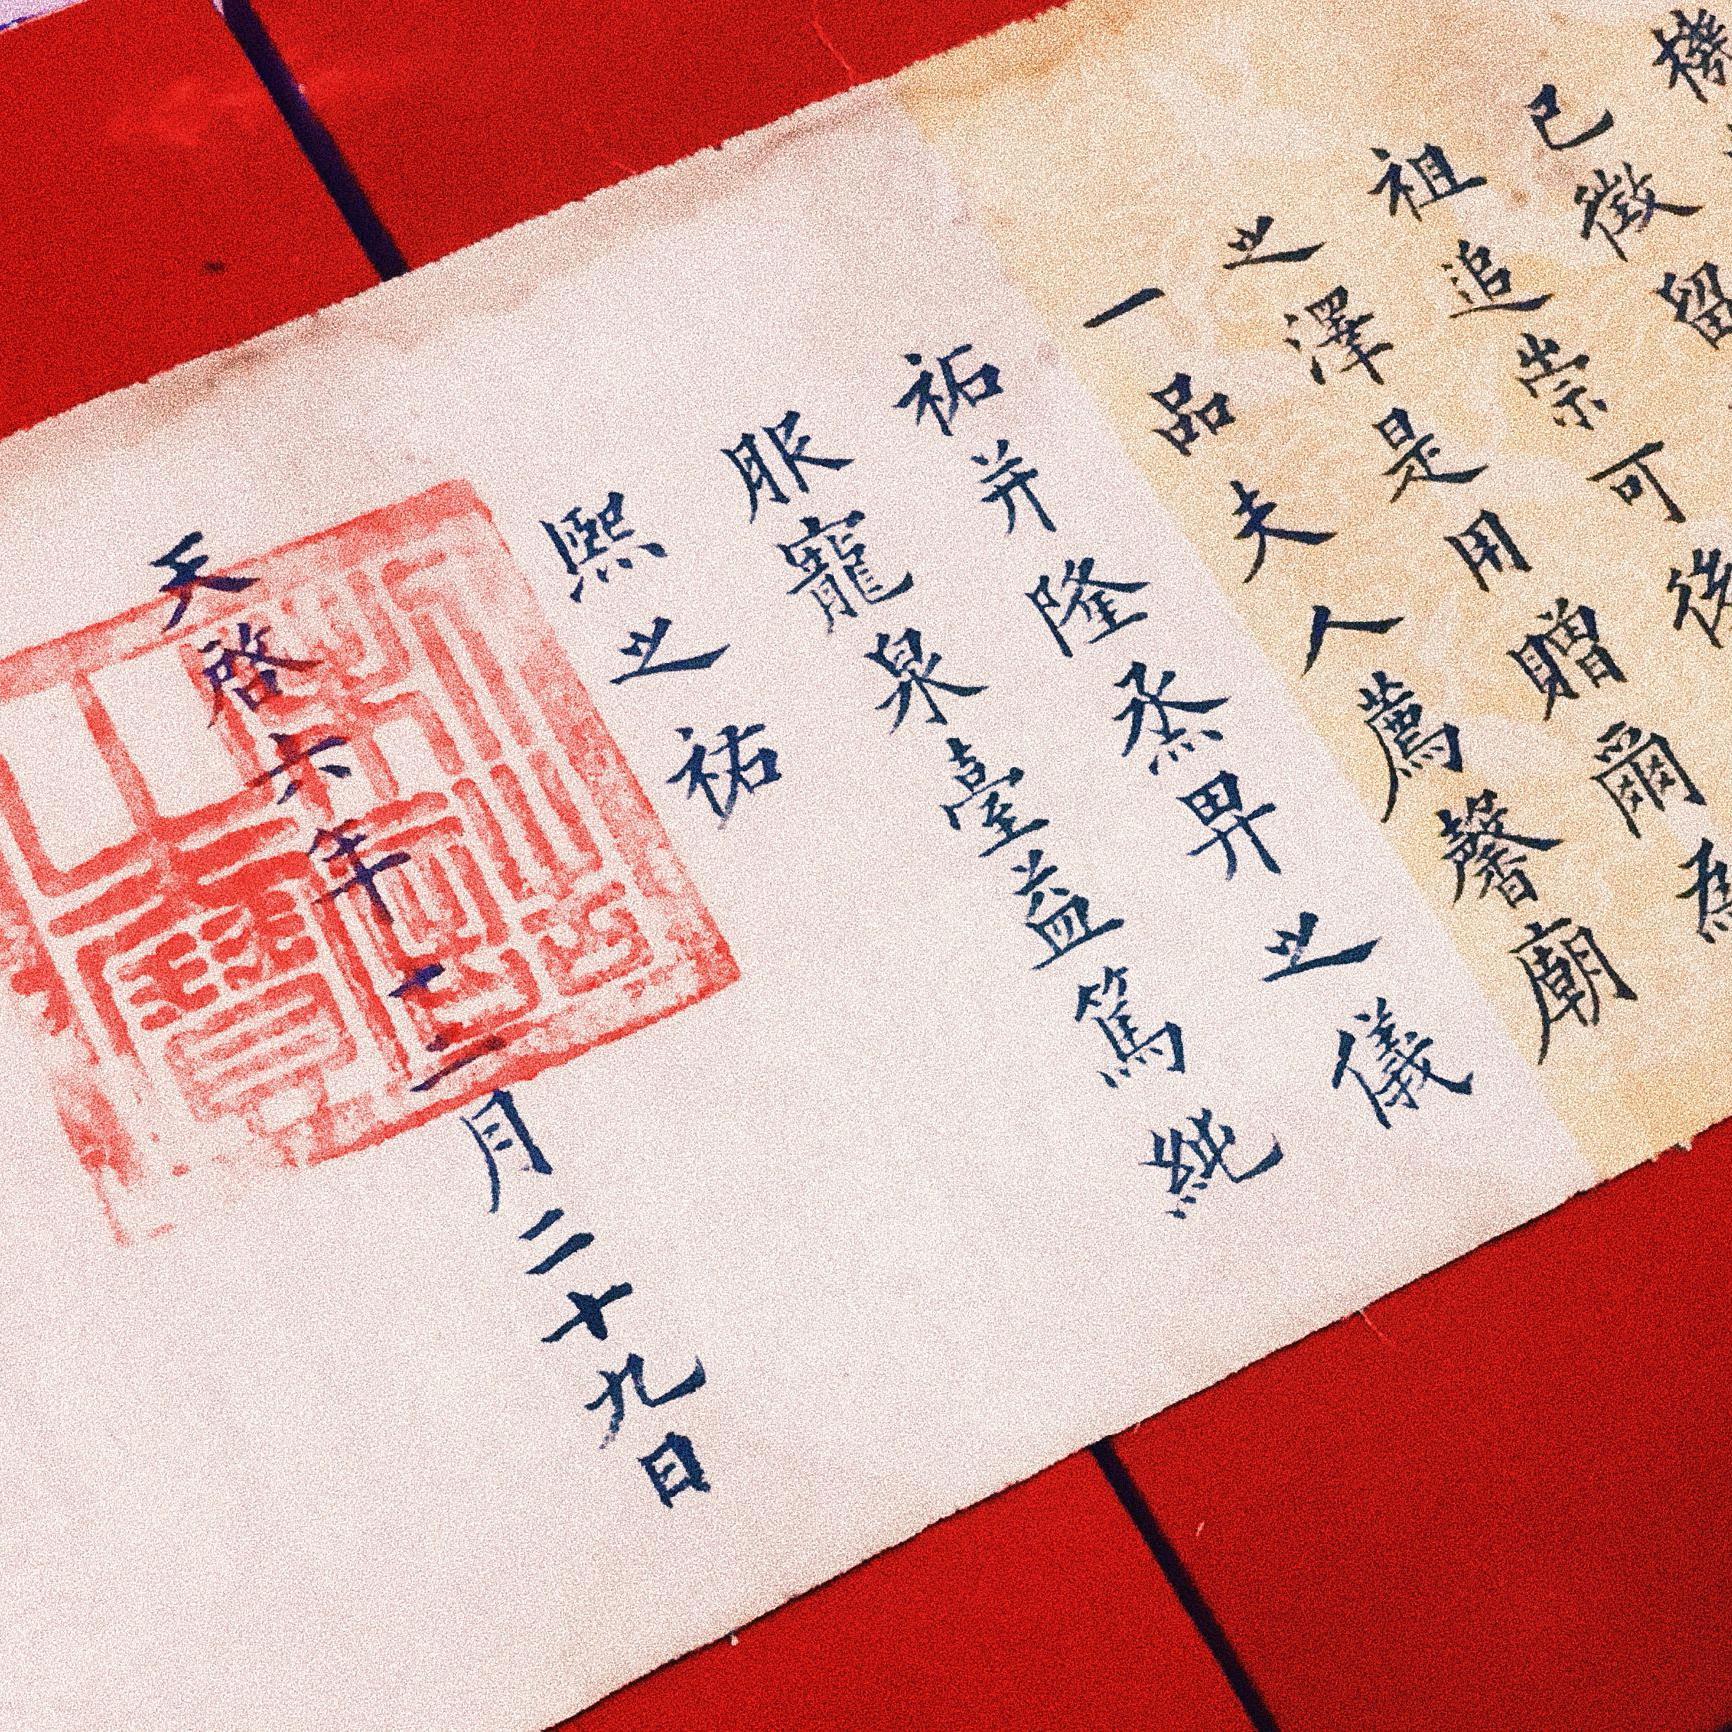 機
已徵留
祖追崇可後
之澤是用贈爾為
一品夫人薦馨廟
祏并隆烝畀之儀
服寵泉臺益篤純
熙之祐
天啓六年十二月二十九日
制誥之寶